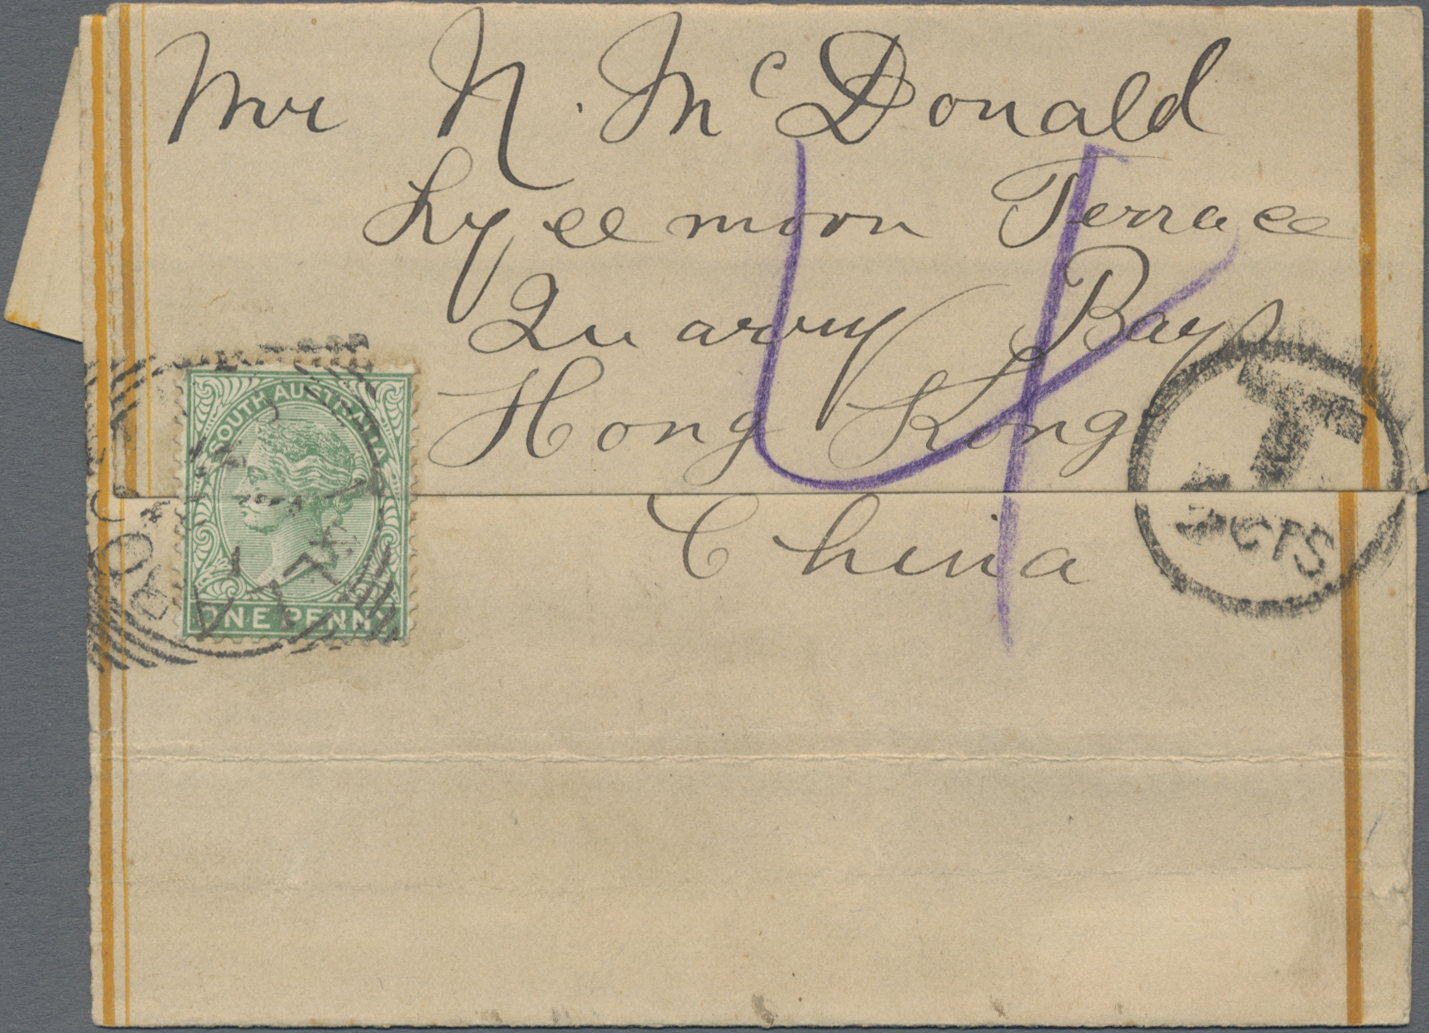 Mr N. McDonald
Lyeemoon Terrace
Quarry Bay
Hong Kong
China
SOUTH AUSTRALIA
ONE PENNY
T
CTS
4